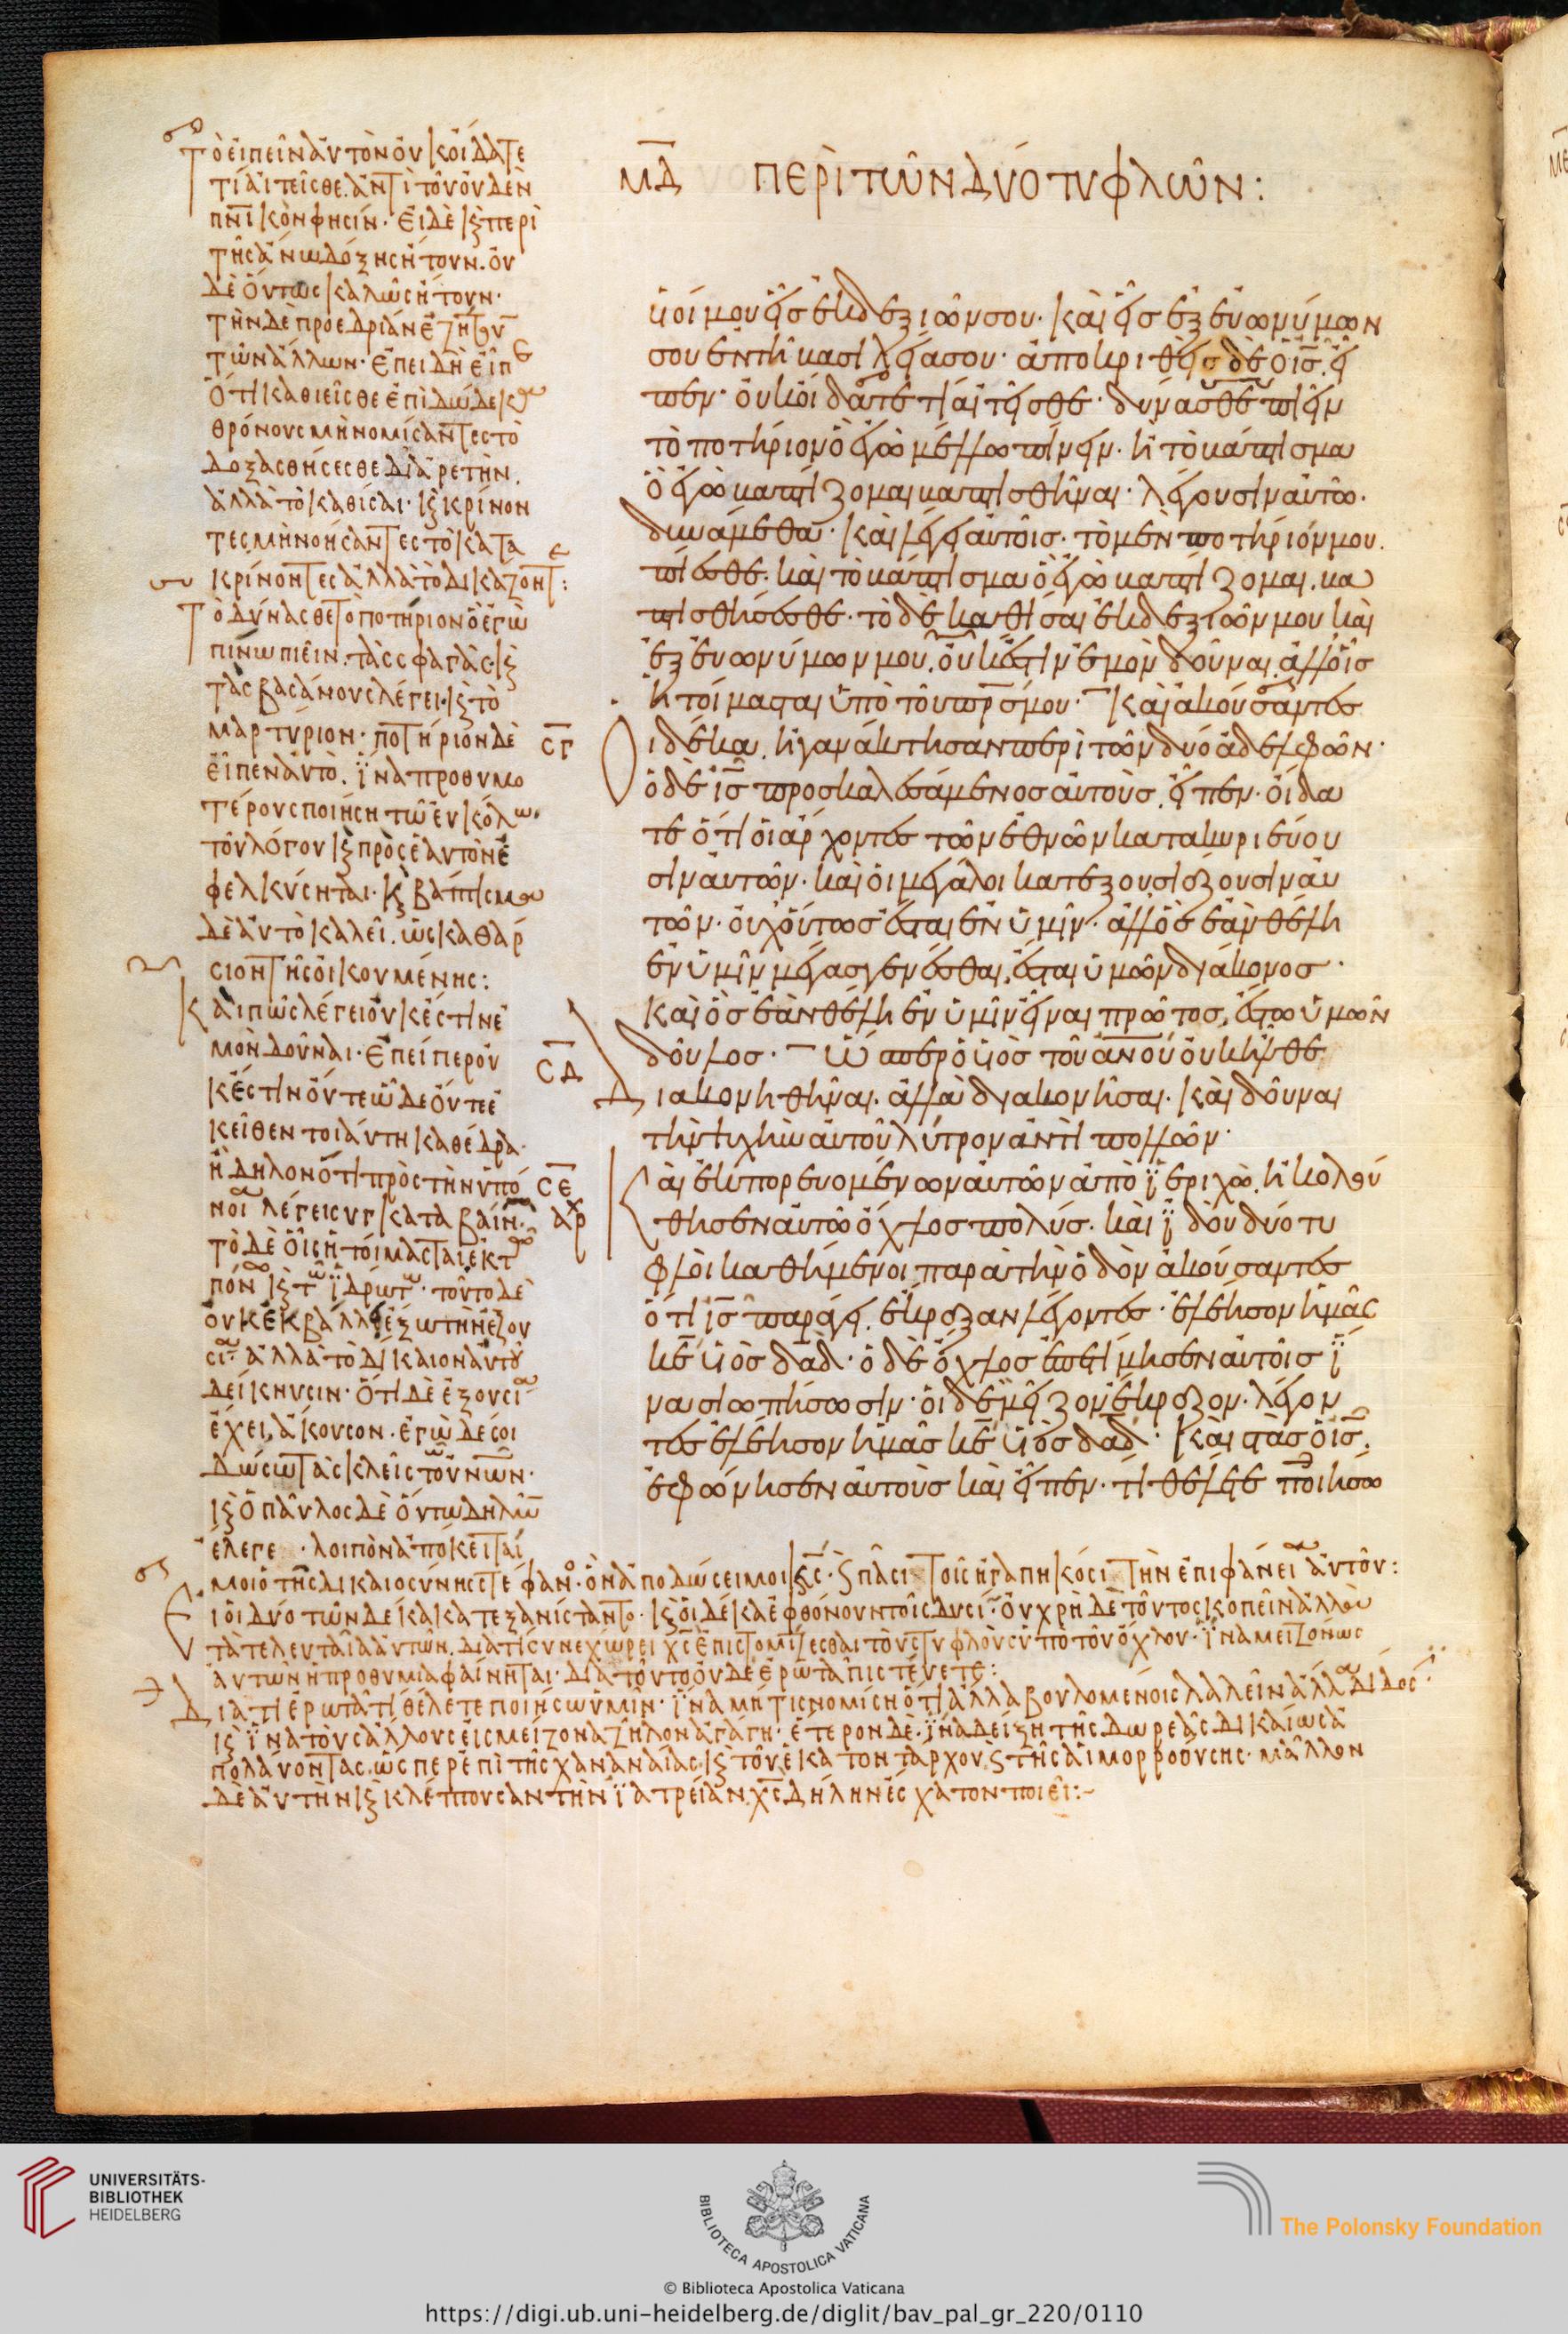 Τὸ εἰπεῖν αὐτὸν οὐκ οἴδατε
τί αἰτεῖσθε. ἀντὶ τοῦ οὐδὲν
πνικὸν φησίν· εἰ δὲ κ περὶ
τῆς ἄνω δόξης ἤτουν. οὐ
δὲ οὕτως καλῶς ἤτουν·
τὴν δὲ προεδρίαν ἐζήτουν
τῶν ἄλλων· ἐπειδὴ εἶπε
ὅτι καθιεῖσθε ἐπὶ δώδεκα
θρόνους μὴ νομίσαντες τὸ
δοξασθήσεσθε δι ἀρετὴν.
ἀλλὰ τὸ καθίσαι· κ κρίνον
τες μὴ νοήσαντες τὸ κατα
κρίνοντες ἀλλὰ τὸ δικάζοντες:
Τὸ δύνασθε τὸ ποτήριον ὃ ἐγὼ
πίνω πιεῖν. τὰς σφαγὰς κ
τὰς βασάνους λέγει· κ τὸ
μαρτύριον· ποτήριον δὲ
εἶπεν αὐτὸ. ἵνα προθυμο
τέρους ποιήσῃ τῷ εὐκόλῳ
τοῦ λόγου κ πρὸς ἑαυτὸν ἐ
φελκύσηται· κ βάπτισμα
δὲ αὐτὸ καλεῖ. ὡς καθάρ
σιον τῆς οἰκουμένης:
Καὶ πῶς λέγει οὐκ ἔστιν ἐ
μὸν δοῦναι· ἐπείπερ οὐ
κ ἔστιν οὔτε ὧδε οὔτε ἐ
κεῖθεν τοιαύτη καθέδρα·
ἢ δηλονότι πρὸς τὴν ὑπό
νοιαν λέγει συγκαταβαίνων
τὸ δὲ οἷς ἡτοίμασται ἐκ τῶν
πόνων κ τῶν ἱδρώτων· τοῦτο δὲ
οὐκ ἐκβάλλει ἔξω τὴν ἐξου
σίαν ἀλλὰ τὸ δίκαιον αὐτοῦ
δείκνυσιν· ὅτι δὲ ἐξουσίαν
ἔχει, ἄκουσον· ἐγὼ δέ σοι
δώσω τὰς κλεῖς τῶν οὐνῶν·
κ ὁ παῦλος δὲ οὕτω δηλῶν
ἔλεγε· λοιπὸν ἀπόκειταί
μοι ὁ τῆς δικαιοσύνης στέφανος· ὃν ἀποδώσει μοι κς· κ πᾶσι τοῖς ἠγαπηκόσι τὴν ἐπιφάνειαν αὐτοῦ:
Εἰ οἱ δύο τῶν δέκα κατεξανίσταντο· κ οἱ δέκα ἐφθόνουν τοῖς δυσίν· οὐ χρὴ δὲ τοῦτο σκοπεῖν ἀλλὰ
τὰ τελευταῖα αὐτῶν. διατί συνεχώρει χς ἐπιστομίζεσθαι τοὺς τυφλοὺς ὑπὸ τοῦ ὄχλου· ἵνα μειζόνως
αὐτῶν ἡ προθυμία φαίνηται· διὰ τοῦτο οὐδὲ ἐρωτᾷ πιστεύετε:
Διατί ἐρωτᾷ τί θέλετε ποιήσω ὑμῖν· ἵνα μή τις νομίσῃ ὅτι ἄλλα βουλομένοις λαλεῖν ἄλλα δίδωσι
κ ἵνα τοὺς ἄλλους εἰς μείζονα ζῆλον ἀγάγῃ· ἕτερον δὲ. ἵνα δείξῃ τῆς δωρεᾶς δικαίως ἀ
πολαύοντας. ὥσπερ ἐπὶ τῆς χαναναίας. κ τοῦ ἑκατοντάρχου κ τῆς αἱμορροούσης· μᾶλλον
δὲ αὐτὴν κ κλέπτουσαν τὴν ἰατρείαν χς δήλην ἐς χατον ποιεῖ:
ΜΔ ΠΕΡΙ ΤΩΝ ΔΥΟ ΤΥΦΛΩΝ:
υἱοί μου εἷς ἐκ δεξιῶν σου· καὶ εἷς ἐξ εὐωνύμων
σου ἐν τῇ βασιλείᾳ σου· ἀποκριθεὶς δὲ ὁ ις. εἶ
πεν· οὐκ οἴδατε τί αἰτεῖσθε· δύνασθε πιεῖν
τὸ ποτήριον ὃ ἐγὼ μέλλω πίνειν. ἢ τὸ βάπτισμα
ὃ ἐγὼ βαπτίζομαι βαπτισθῆναι· λέγουσιν αὐτῷ.
δυνάμεθα· καὶ λέγει αὐτοῖς· τὸ μὲν ποτήριόν μου.
πίεσθε. καὶ τὸ βάπτισμα ὃ ἐγὼ βαπτίζομαι. βα
πτισθήσεσθε· τὸ δὲ καθίσαι ἐκ δεξιῶν μου καὶ
ἐξ εὐωνύμων μου. οὐκ ἔστιν ἐμὸν δοῦναι. ἀλλ' οἷς
ἡτοίμασται ὑπὸ τοῦ πρς μου· καὶ ἀκούσαντες
ϹΓ οἱ δέκα. ἠγανάκτησαν περὶ τῶν δύο ἀδελφῶν·
ὁ δὲ ις προσκαλεσάμενος αὐτοὺς. εἶπεν· οἴδα
τε ὅτι οἱ ἄρχοντες τῶν ἐθνῶν κατακυριεύου
σιν αὐτῶν· καὶ οἱ μεγάλοι κατεξουσιάζουσιν αὐ
τῶν· οὐχ οὕτως ἔσται ἐν ὑμῖν· ἀλλ' ὃς ἐὰν θέλῃ
ἐν ὑμῖν μέγας γενέσθαι, ἔσται ὑμῶν διάκονος·
καὶ ὃς ἐὰν θέλῃ ἐν ὑμῖν εἶναι πρῶτος, ἔστω ὑμῶν
δοῦλος· ὥσπερ ὁ υἱὸς τοῦ ανου οὐκ ἦλθε
ϹΔ διακονηθῆναι. ἀλλὰ διακονῆσαι. καὶ δοῦναι
τὴν ψυχὴν αὐτοῦ λύτρον ἀντὶ πολλῶν·
ϹΕ καὶ ἐκπορευομένων αὐτῶν ἀπὸ ἱεριχὼ. ἠκολού
ἀρχ θησεν αὐτῷ ὄχλος πολύς· καὶ ἰδοὺ δύο τυ
φλοὶ καθήμενοι παρὰ τὴν ὁδὸν ἀκούσαντες
ὅτι ις παράγει. ἔκραξαν λέγοντες· ἐλέησον ἡμᾶς
κε υἱὸς δαδ· ὁ δὲ ὄχλος ἐπετίμησεν αὐτοῖς ἵ
να σιωπήσωσιν· οἱ δὲ μεῖζον ἔκραζον· λέγον
τες ἐλέησον ἡμᾶς κε υἱὸς δαδ· καὶ στὰς ὁ ις.
ἐφώνησεν αὐτοὺς καὶ εἶπεν· τί θέλετε ποιήσω
UNIVERSITÄTS-
BIBLIOTHEK
HEIDELBERG
BIBLIOTECA APOSTOLICA VATICANA
The Polonsky Foundation
© Biblioteca Apostolica Vaticana
https://digi.ub.uni-heidelberg.de/diglit/bav_pal_gr_220/0110